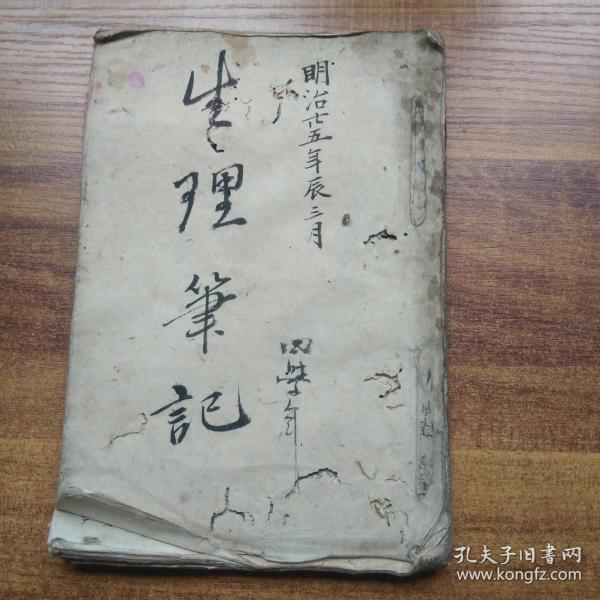 明治廿五年辰三月
生理筆記
四學年
孔夫子旧書网
www.kongfz.com